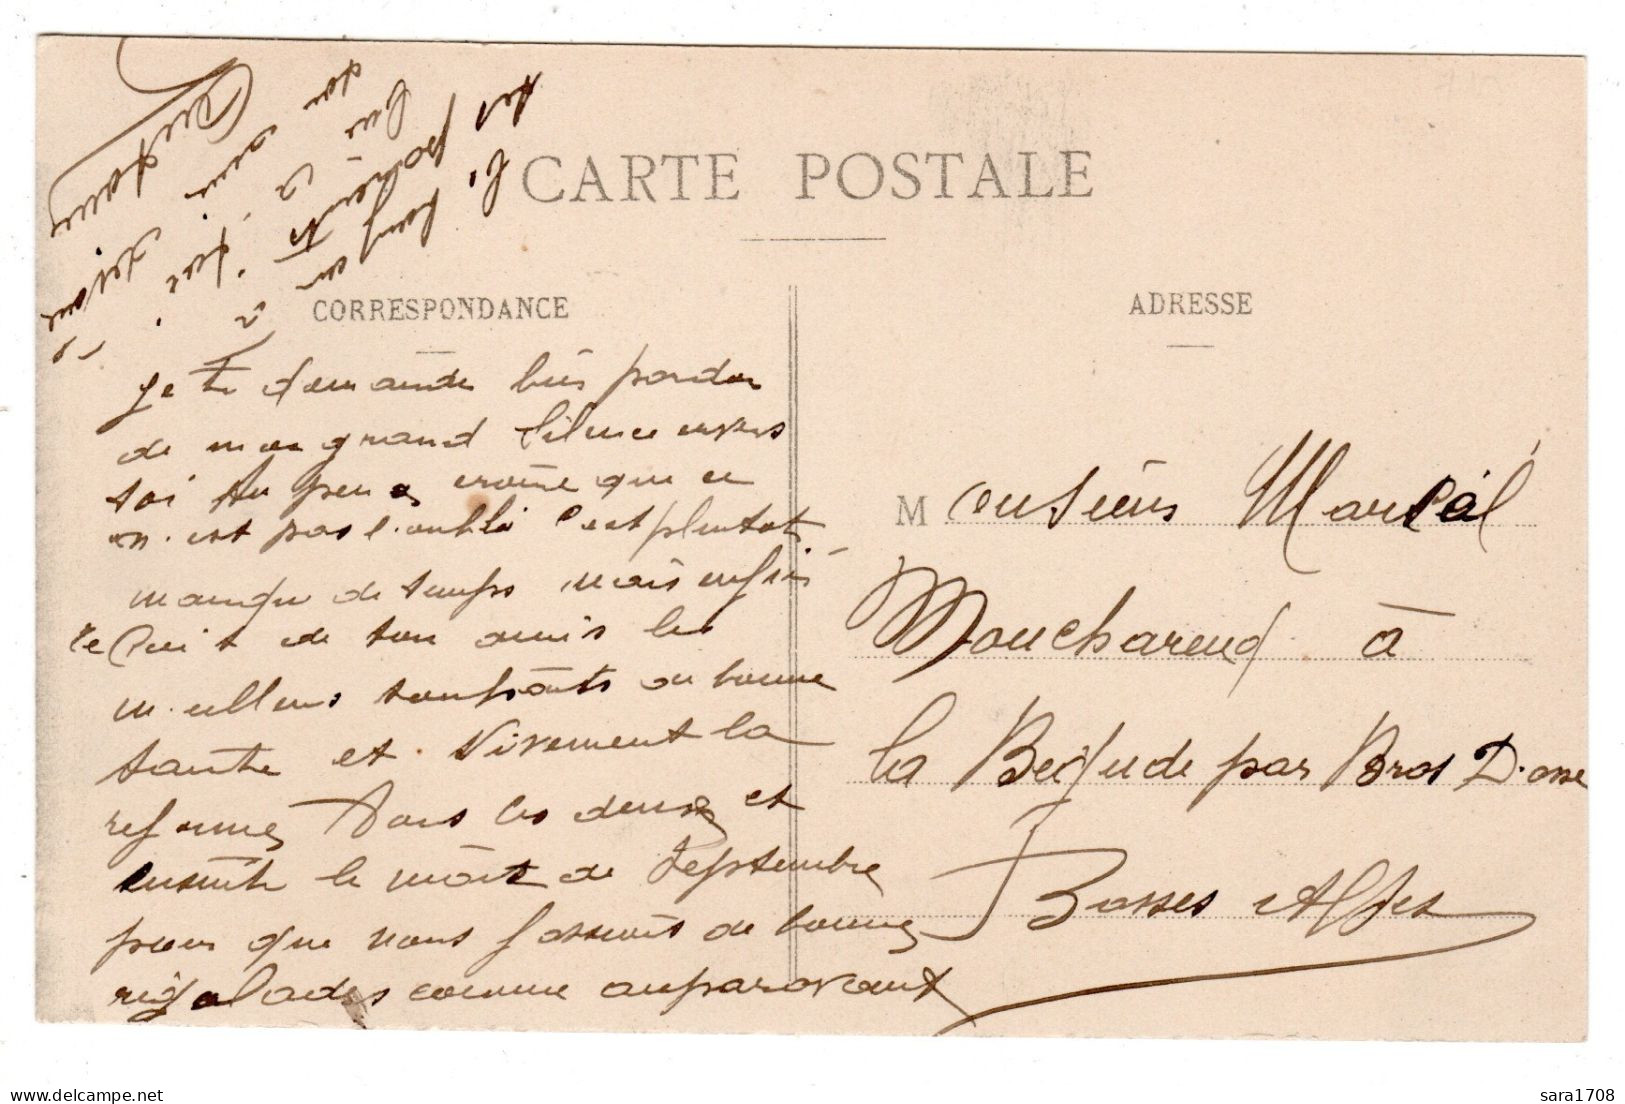 CARTE POSTALE
CORRESPONDANCE
ADRESSE
je te demande bien pardon
de mon grand silence envers
toi tu peux croire que ce
n'est pas l'oublie c'est plutot
manque de temps mais enfin
recoit de ton amis les
meilleurs souhaits de bonne
santé et vivement la
reforme dans les deux et
ensuite le mois de septembre
pour que nous fassions de bonnes
rigolades comme auparavant
Monsieur Marcel
Moucharend à
la Begude par Bras D. asse
Basses Alpes
sara1708